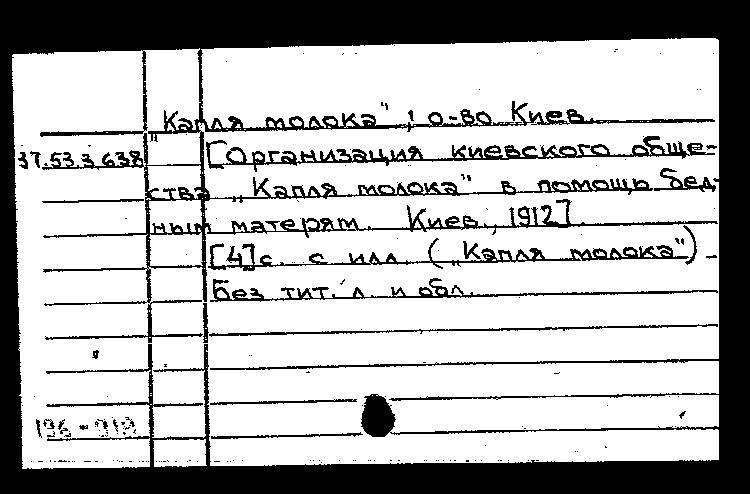 "Капля молока", о-во Киев.
37.53.3.638 [Организация киевского обще-
ства "Капля молока" в помощь бед-
ным матерям. Киев, 1912]
[4] с. с илл. ("Капля молока")
Без тит. л. и обл.